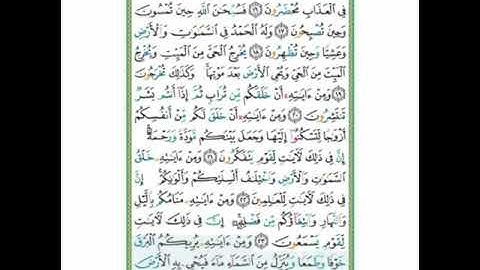 فِي الْعَذَابِ مُحْضَرُونَ ﴿١٦﴾ فَسُبْحَانَ اللَّهِ حِينَ تُمْسُونَ
وَحِينَ تُصْبِحُونَ ﴿١٧﴾ وَلَهُ الْحَمْدُ فِي السَّمَاوَاتِ وَالْأَرْضِ
وَعَشِيًّا وَحِينَ تُظْهِرُونَ ﴿١٨﴾ يُخْرِجُ الْحَيَّ مِنَ الْمَيِّتِ وَيُخْرِجُ
الْمَيِّتَ مِنَ الْحَيِّ وَيُحْيِ الْأَرْضَ بَعْدَ مَوْتِهَا وَكَذَلِكَ تُخْرَجُونَ
﴿١٩﴾ وَمِنْ ءَايَتِهِ أَنْ خَلَقَكُم مِّن تُرَابٍ ثُمَّ إِذَا أَنتُم بَشَرٌ
تَنتَشِرُونَ ﴿٢٠﴾ وَمِنْ ءَايَتِهِ أَنْ خَلَقَ لَكُم مِّنْ أَنفُسِكُمْ
أَزْوَاجًا لِّتَسْكُنُوا إِلَيْهَا وَجَعَلَ بَيْنَكُم مَّوَدَّةً وَرَحْمَةً
إِنَّ فِي ذَلِكَ لَآيَاتٍ لِّقَوْمٍ يَتَفَكَّرُونَ ﴿٢١﴾ وَمِنْ ءَايَتِهِ خَلْقُ
السَّمَاوَاتِ وَالْأَرْضِ وَاخْتِلَافُ أَلْسِنَتِكُمْ وَأَلْوَانِكُمْ إِنَّ
فِي ذَلِكَ لَآيَاتٍ لِّلْعَالِمِينَ ﴿٢٢﴾ وَمِنْ ءَايَتِهِ مَنَامُكُم بِاللَّيْلِ
وَالنَّهَارِ وَابْتِغَاؤُكُم مِّن فَضْلِهِ إِنَّ فِي ذَلِكَ لَآيَاتٍ
لِّقَوْمٍ يَسْمَعُونَ ﴿٢٣﴾ وَمِنْ ءَايَتِهِ يُرِيكُمُ الْبَرْقَ
خَوْفًا وَطَمَعًا وَيُنَزِّلُ مِنَ السَّمَاءِ مَاءً فَيُحْيِ بِهِ الْأَرْضَ